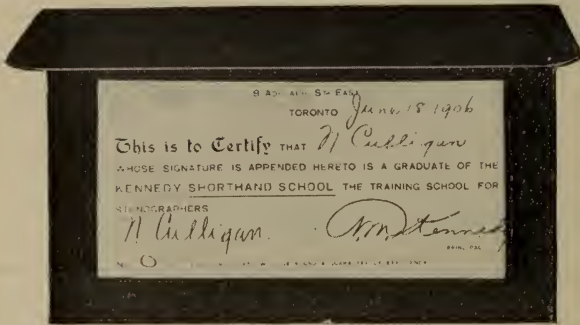 9 ADELAIDE ST. EAST
TORONTO June 18 1906
This is to Certify THAT N Culligan
WHOSE SIGNATURE IS APPENDED HERETO IS A GRADUATE OF THE
KENNEDY SHORTHAND SCHOOL THE TRAINING SCHOOL FOR
STENOGRAPHERS
N Culligan. Kennedy
PRINCIPAL